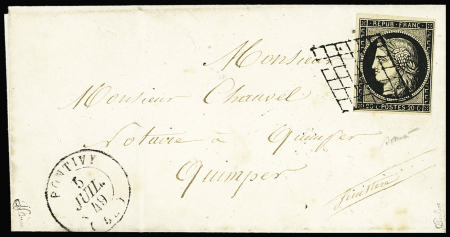 REPUB. FRANC.
POSTES
Monsieur
Monsieur Chauvel
Notaire à Quimper
Quimper
finistère
PONTIVY
5
JUIL.
49